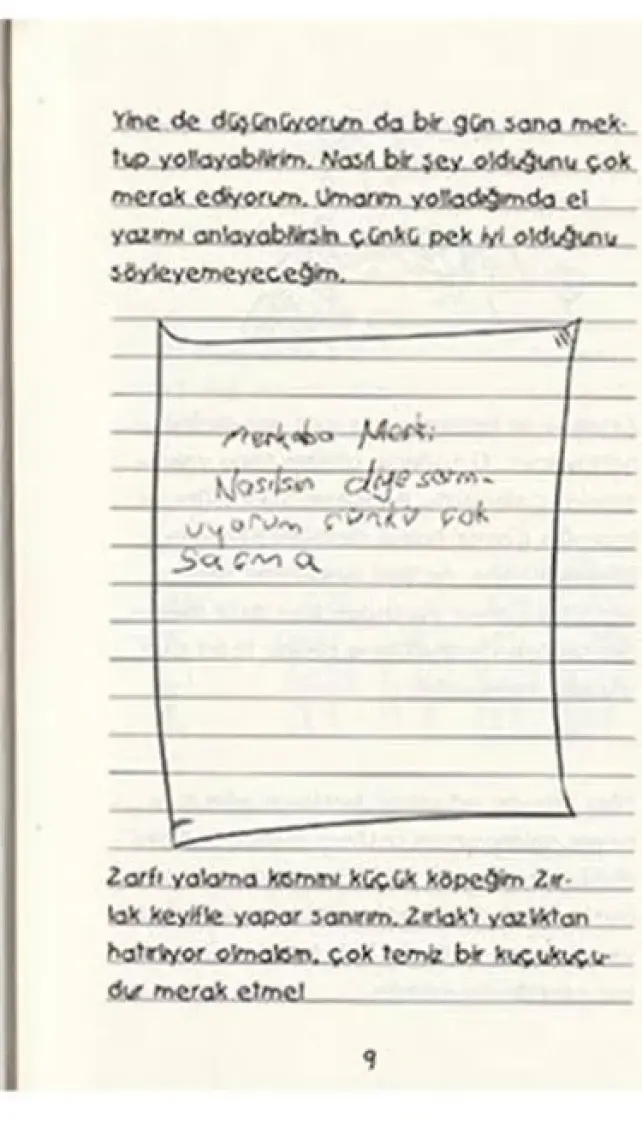 Yine de düşünüyorum da bir gün sana mek-
tup yollayabilirim. Nasıl bir şey olduğunu çok
merak ediyorum. Umarım yolladığımda el
yazımı anlayabilirsin çünkü pek iyi olduğunu
söyleyemeyeceğim.
Merhaba Mert:
Nasılsın diye sorm-
uyorum çünkü çok
saçma
Zarfı yalama kısmını küçük köpeğim Zır-
lak keyifle yapar sanırım. Zırlak'ı yazlıktan
hatırlıyor olmalısın, çok temiz bir kuçukuçu-
dur merak etme!
9